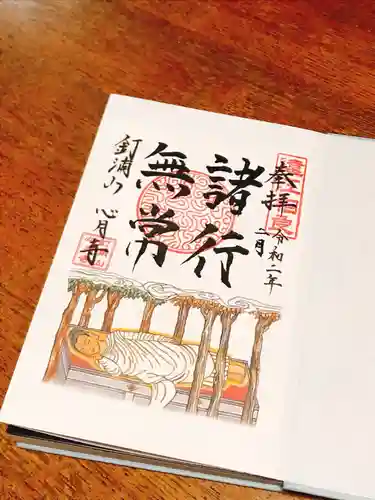 奉拝
令和二年
二月
諸行
無常
釘浦山
心月寺